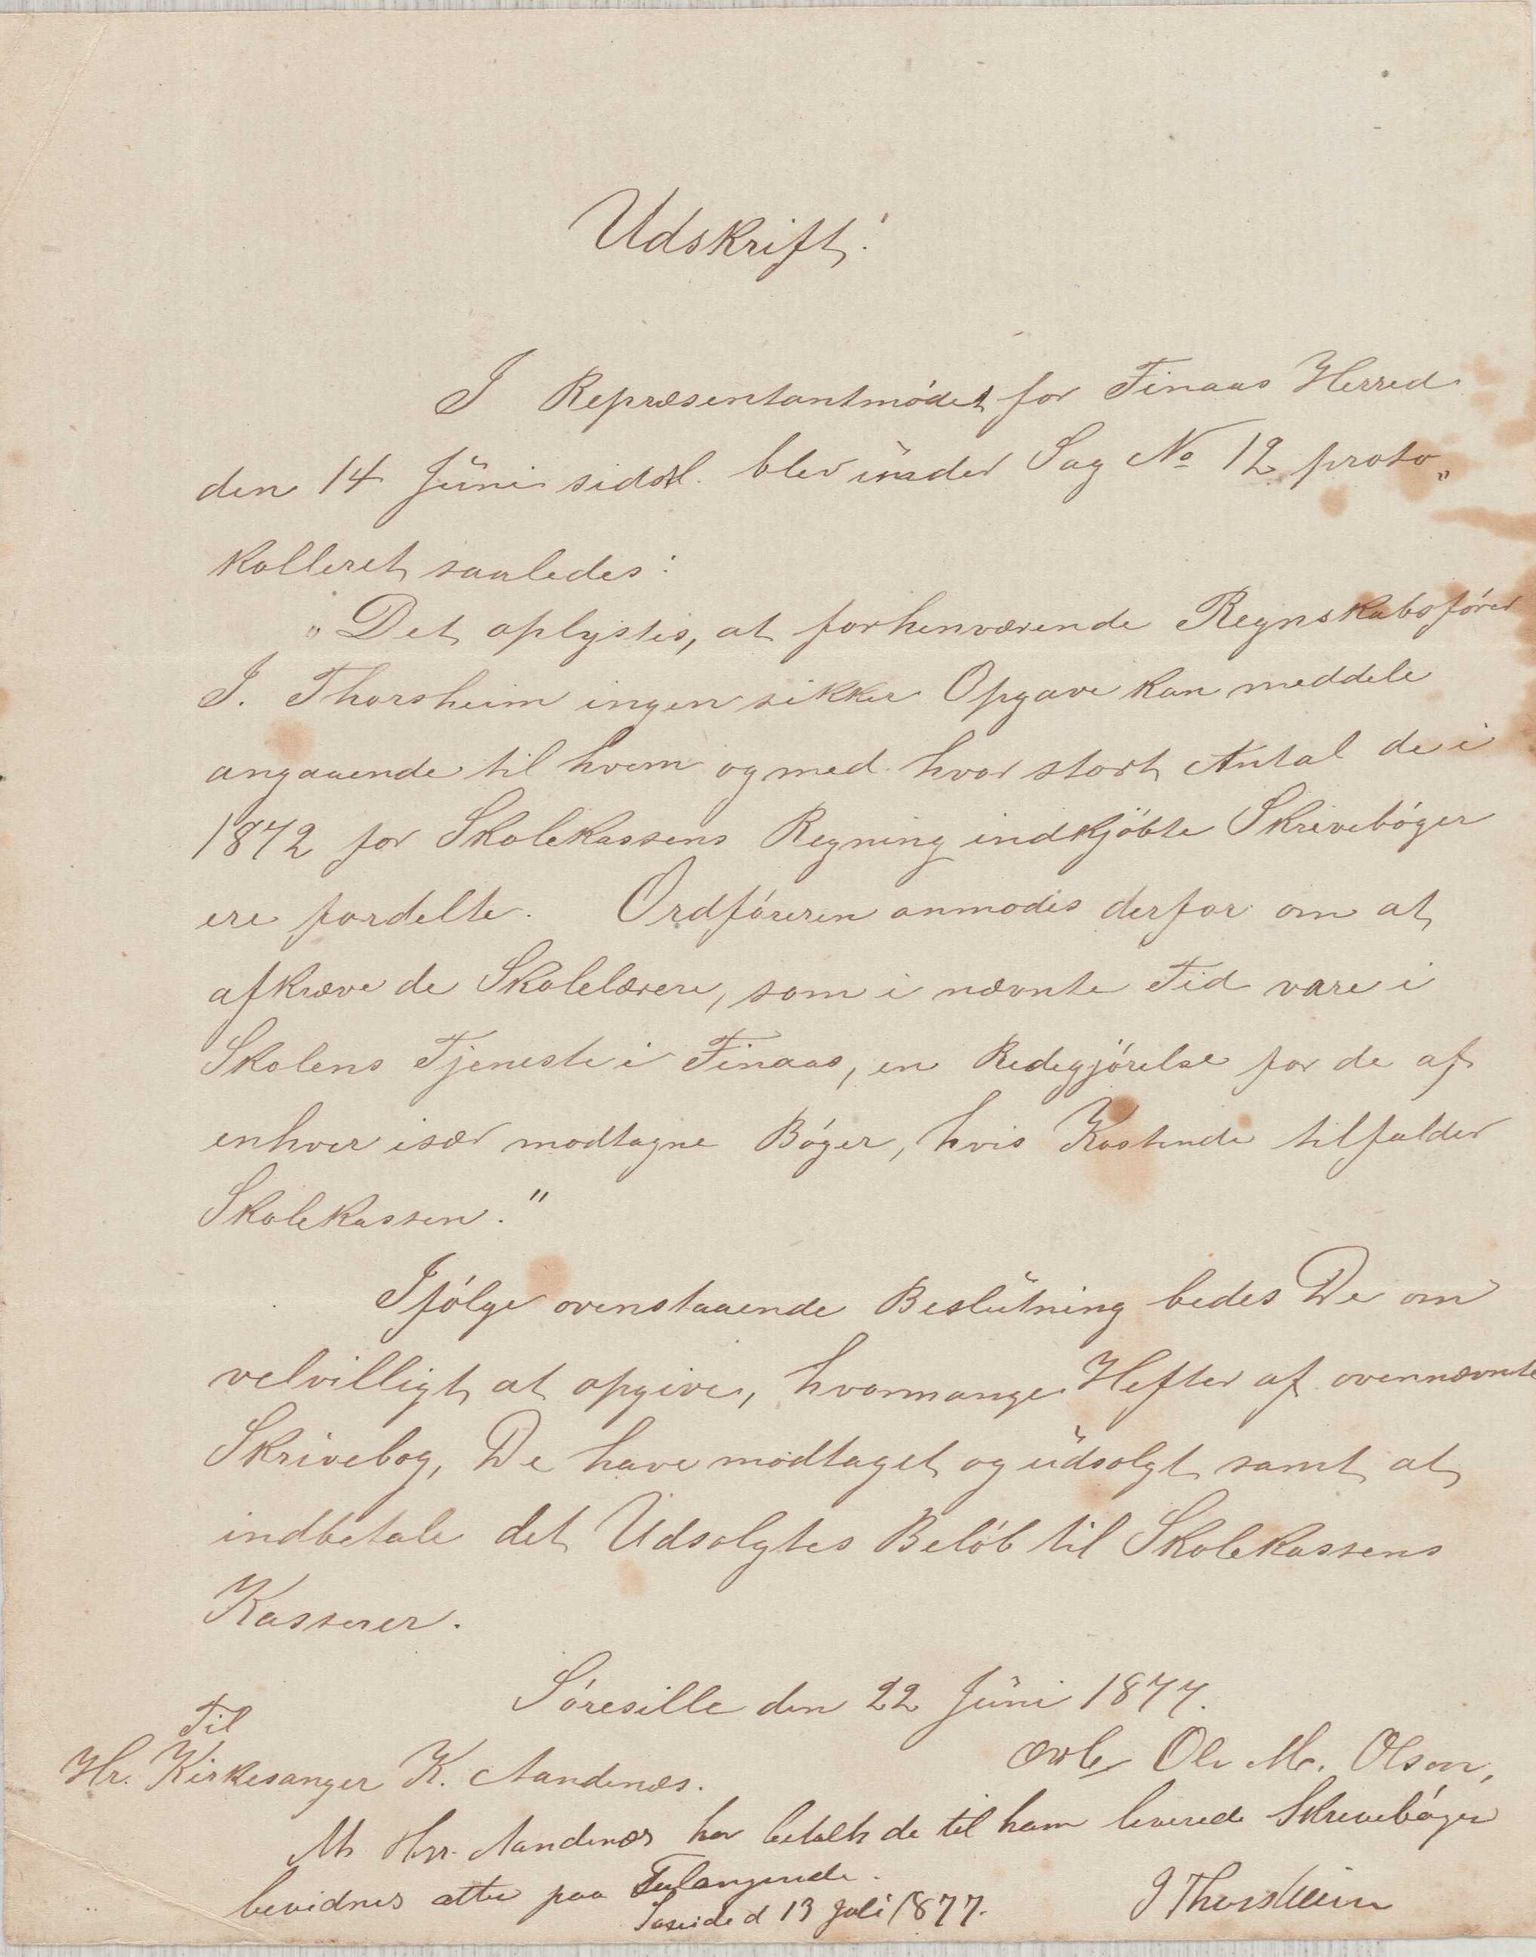 Udskrift:
I Repræsentantmødet for Finaas Herred
den 14 Juni sidstl. blev under Sag No 12 proto„
kolleret saaledes:
„Det oplystes, at forhenværende Regnskabsfører
J. Thorsheim ingen sikker Opgave kan meddele
angaaende til hvem og med hvor stort Antal de i
1872 for Skolekassens Regning indkjøbte Skrivebøger
ere fordelte. Ordføreren anmodes derfor om at
afkræve de Skolelærere, som i nævnte Tid vare i
Skolens Tjeneste i Finaas, en Redegjørelse for de af
enhver især modtagne Bøger, hvis Kostende tilfalder
Skolekassen."
Ifølge ovenstaaende Beslutning bedes De om
velvilligt at opgive, hvormange Hefter af ovennævnte
Skrivebog, De have modtaget og udsolgt samt at
indbetale det Udsolgtes Beløb til Skolekassens
Kasserer.
Søresille den 22 Juni 1877.
Ole M. Olson,
Til
Hr. Kirkesanger K. Aandenæs.
At Hrr. Aandenæs har betalt de til ham leverede Skrivebøger
bevidnes efter paa Forlangende.
d 13 Juli 1877.
J Thorsheim